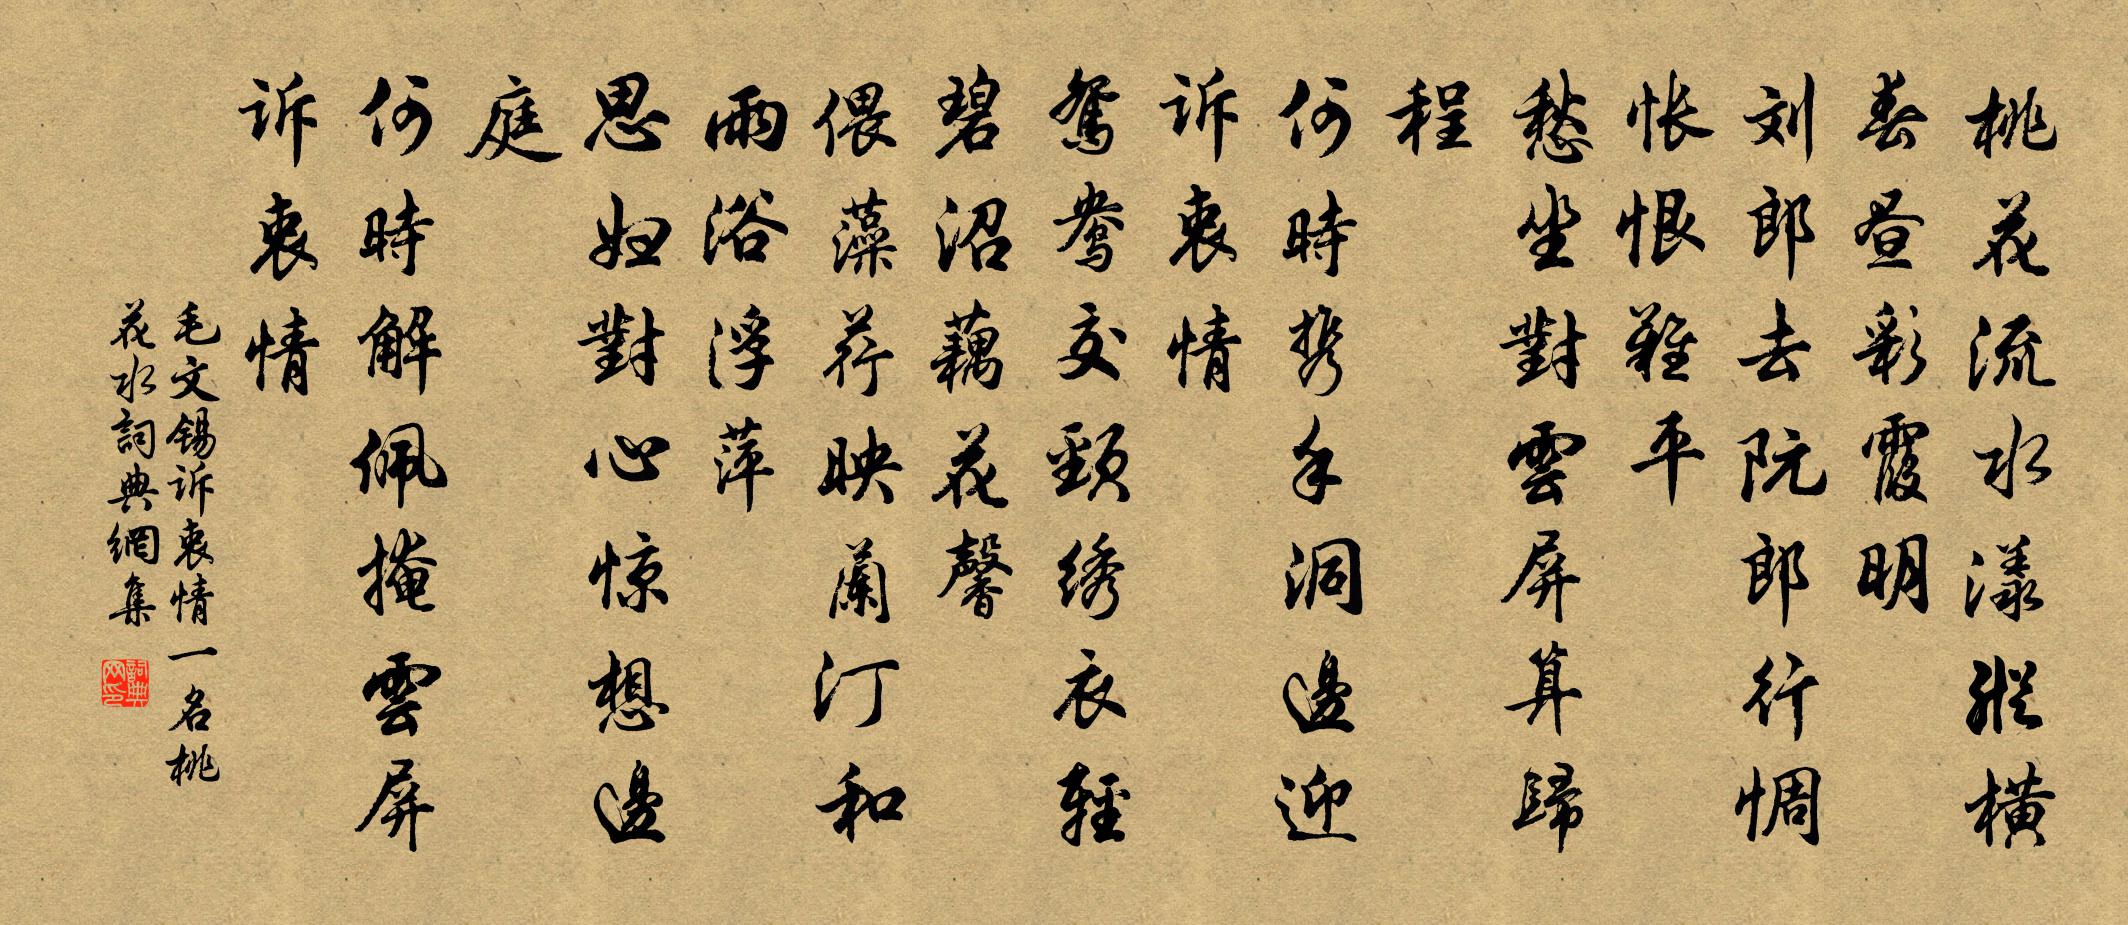 桃花流水漾縱橫
春晝彩霞明
刘郎去阮郎行惆
怅恨難平
愁坐對雲屏算歸
程
何時携手洞邊迎
诉衷情
鴛鴦交頸绣衣輕
碧沼藕花馨
偎藻荇映蘭汀和
雨浴浮萍
思妇對心惊想邊
庭
何時解佩掩雲屏
诉衷情
毛文锡诉衷情一名桃
花水詞典網集
詞典网印